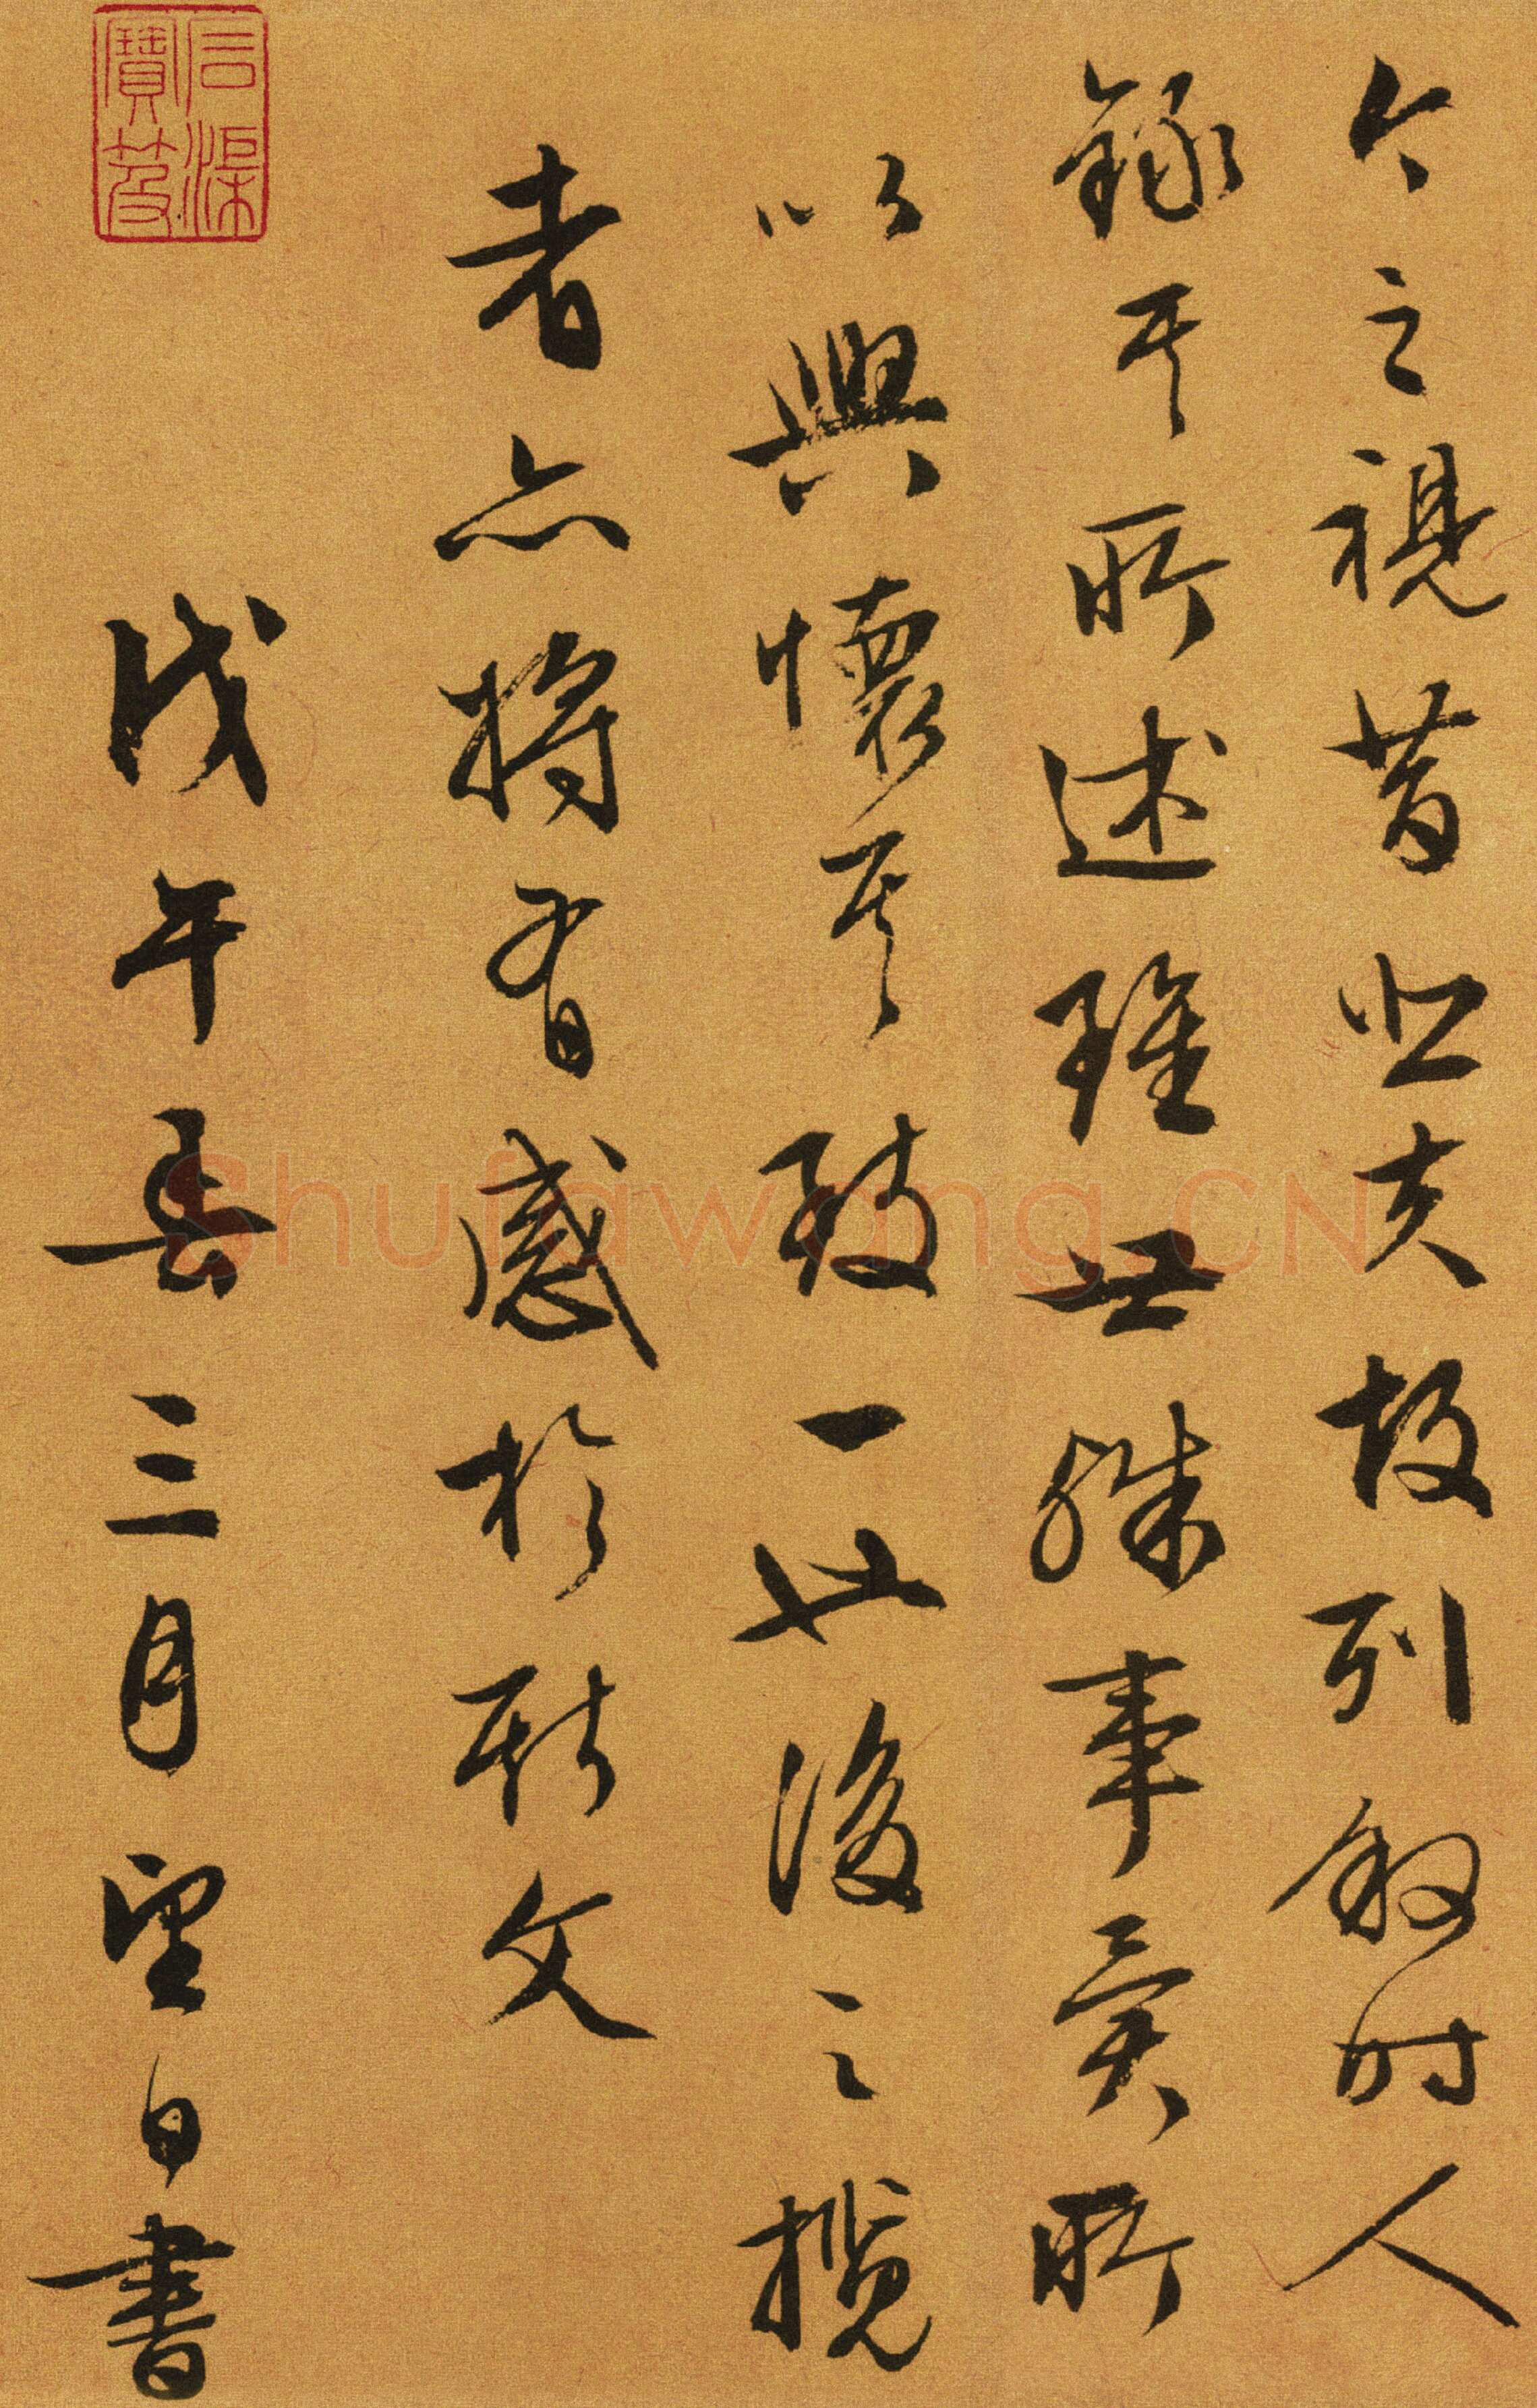 今之視昔悲夫故列敘時人
錄其所述雖世殊事異所
以興懷其致一也後之攬
者亦將有感於斯文
戊午春三月望日書
石渠寶笈
Shufawang.CN